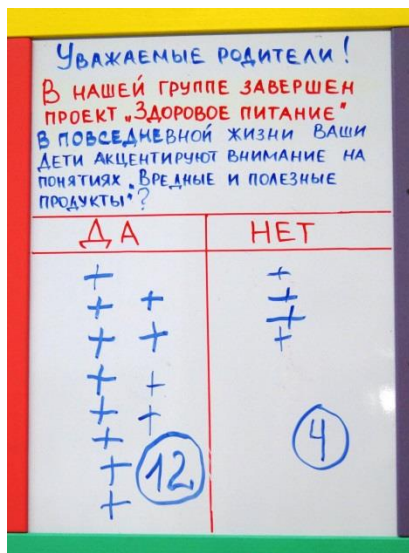 Уважаемые родители!
В нашей группе завершен
проект „Здоровое питание"
В повседневной жизни Ваши
дети акцентируют внимание на
понятиях „Вредные и полезные
продукты"?
ДА НЕТ
+ +
+ + +
+ + +
+ + +
+ +
+
+
+
12 4